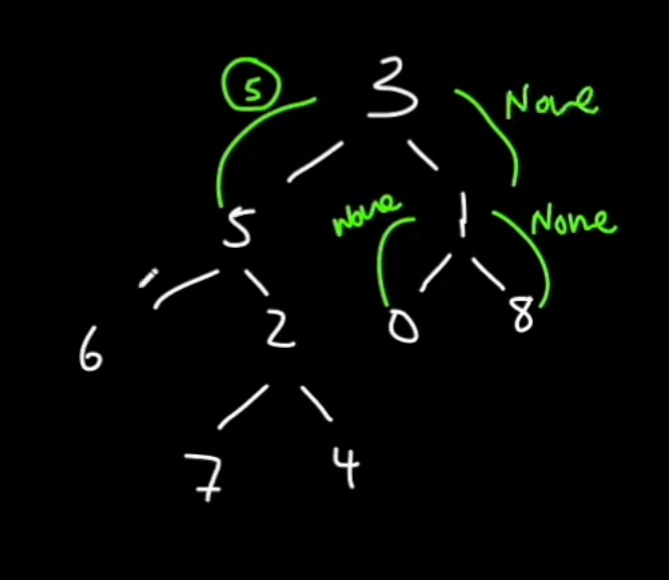 5 3 None
5 None 1 None
6 2 0 8
7 4